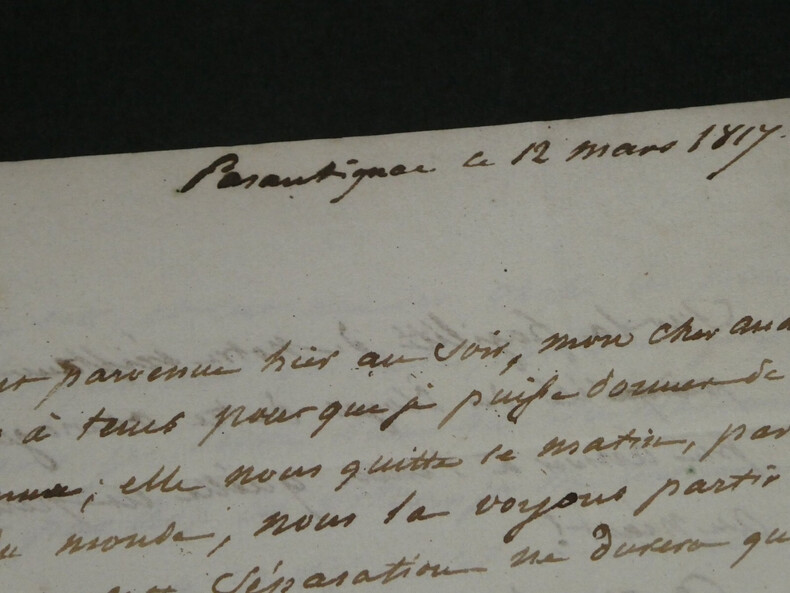 Pasantignac ce 12 mars 1817.
parvenue hier au Soir, mon cher
à tems pour que je puisse donner de
elle nous quitte ce matin, par
du monde, nous la voyons partir
Séparation ne durera